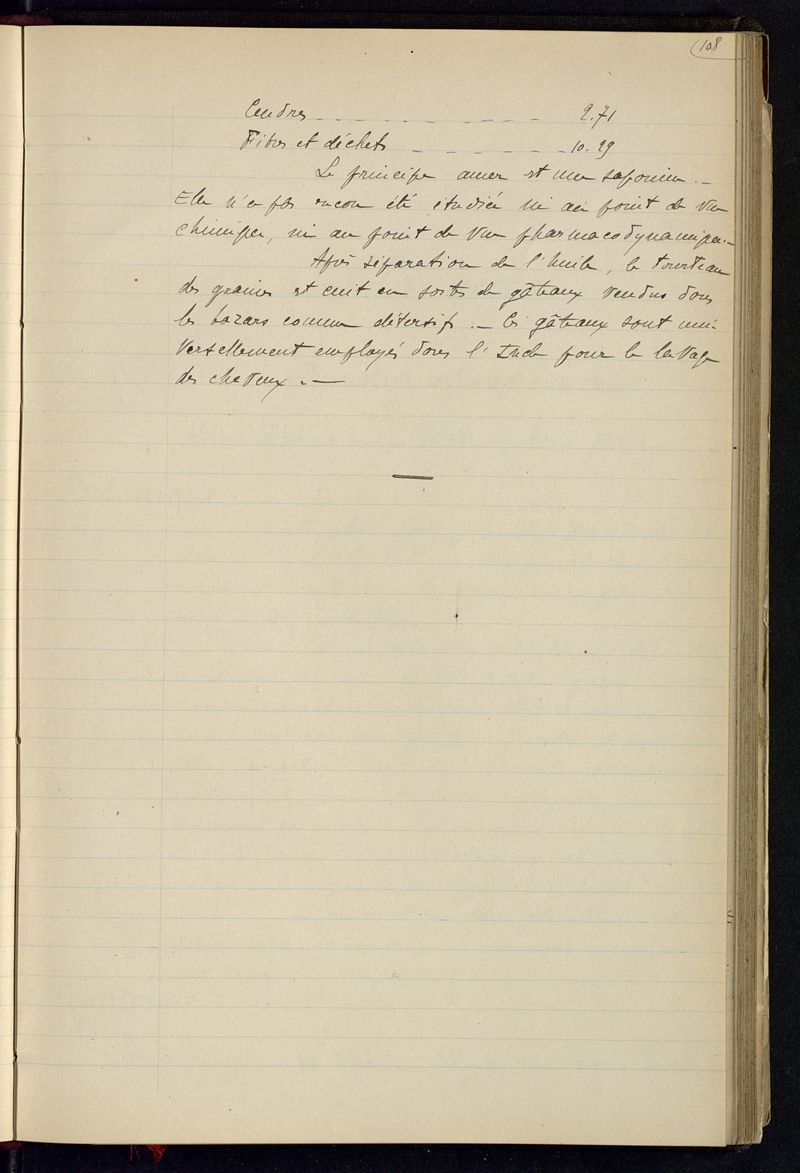 108
Cendres _ _ _ _ _ _ _ _ _ _ _ _ 2.71
Fibres et déchets _ _ _ _ _ _ _ _ 10.29
Le principe amer est une saponine. _
Elle n'a pas encore été étudiée ni au point de vue
chimique, ni au point de vue pharmacodynamique._
Après séparation de l'huile, le tourteau
des graines est cuit en sorte de gâteaux vendus dans
les bazars comme détersif. _ Ces gâteaux sont uni-
versellement employés dans l'Inde pour le lavage
des cheveux. _